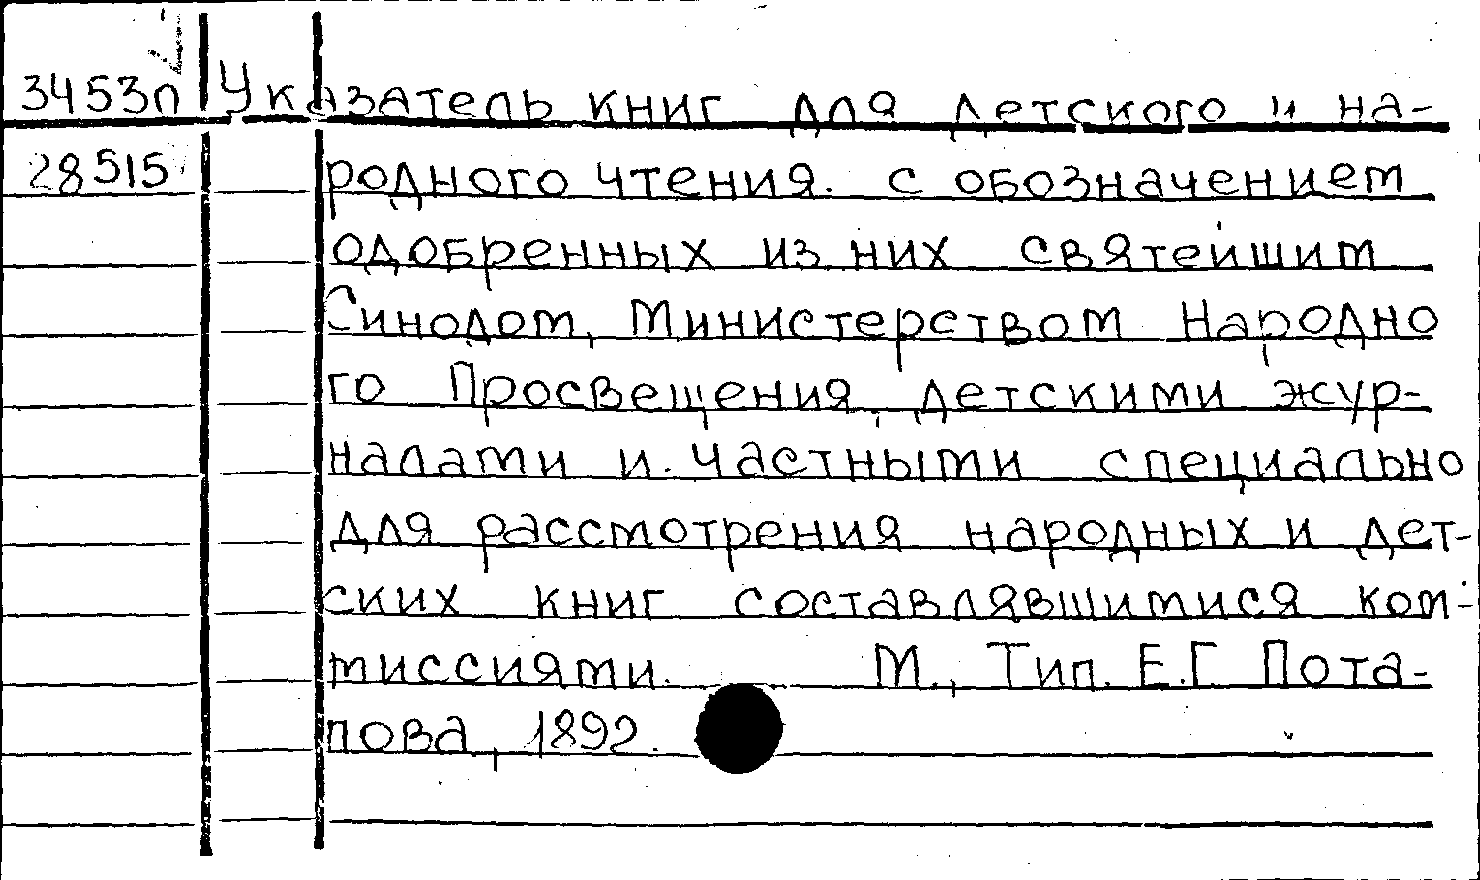 34530 Указатель книг для детского и на-
28515 родного чтения. с обозначением
одобренных из них святейшим
Синодом, Министерством Народно
го Просвещения, детскими жур-
налами и частными специально
для рассмотрения народных и дет-
ских книг составлявшимися ком-
миссиями. М., Тип. Е.Г. Пота-
пова, 1892.